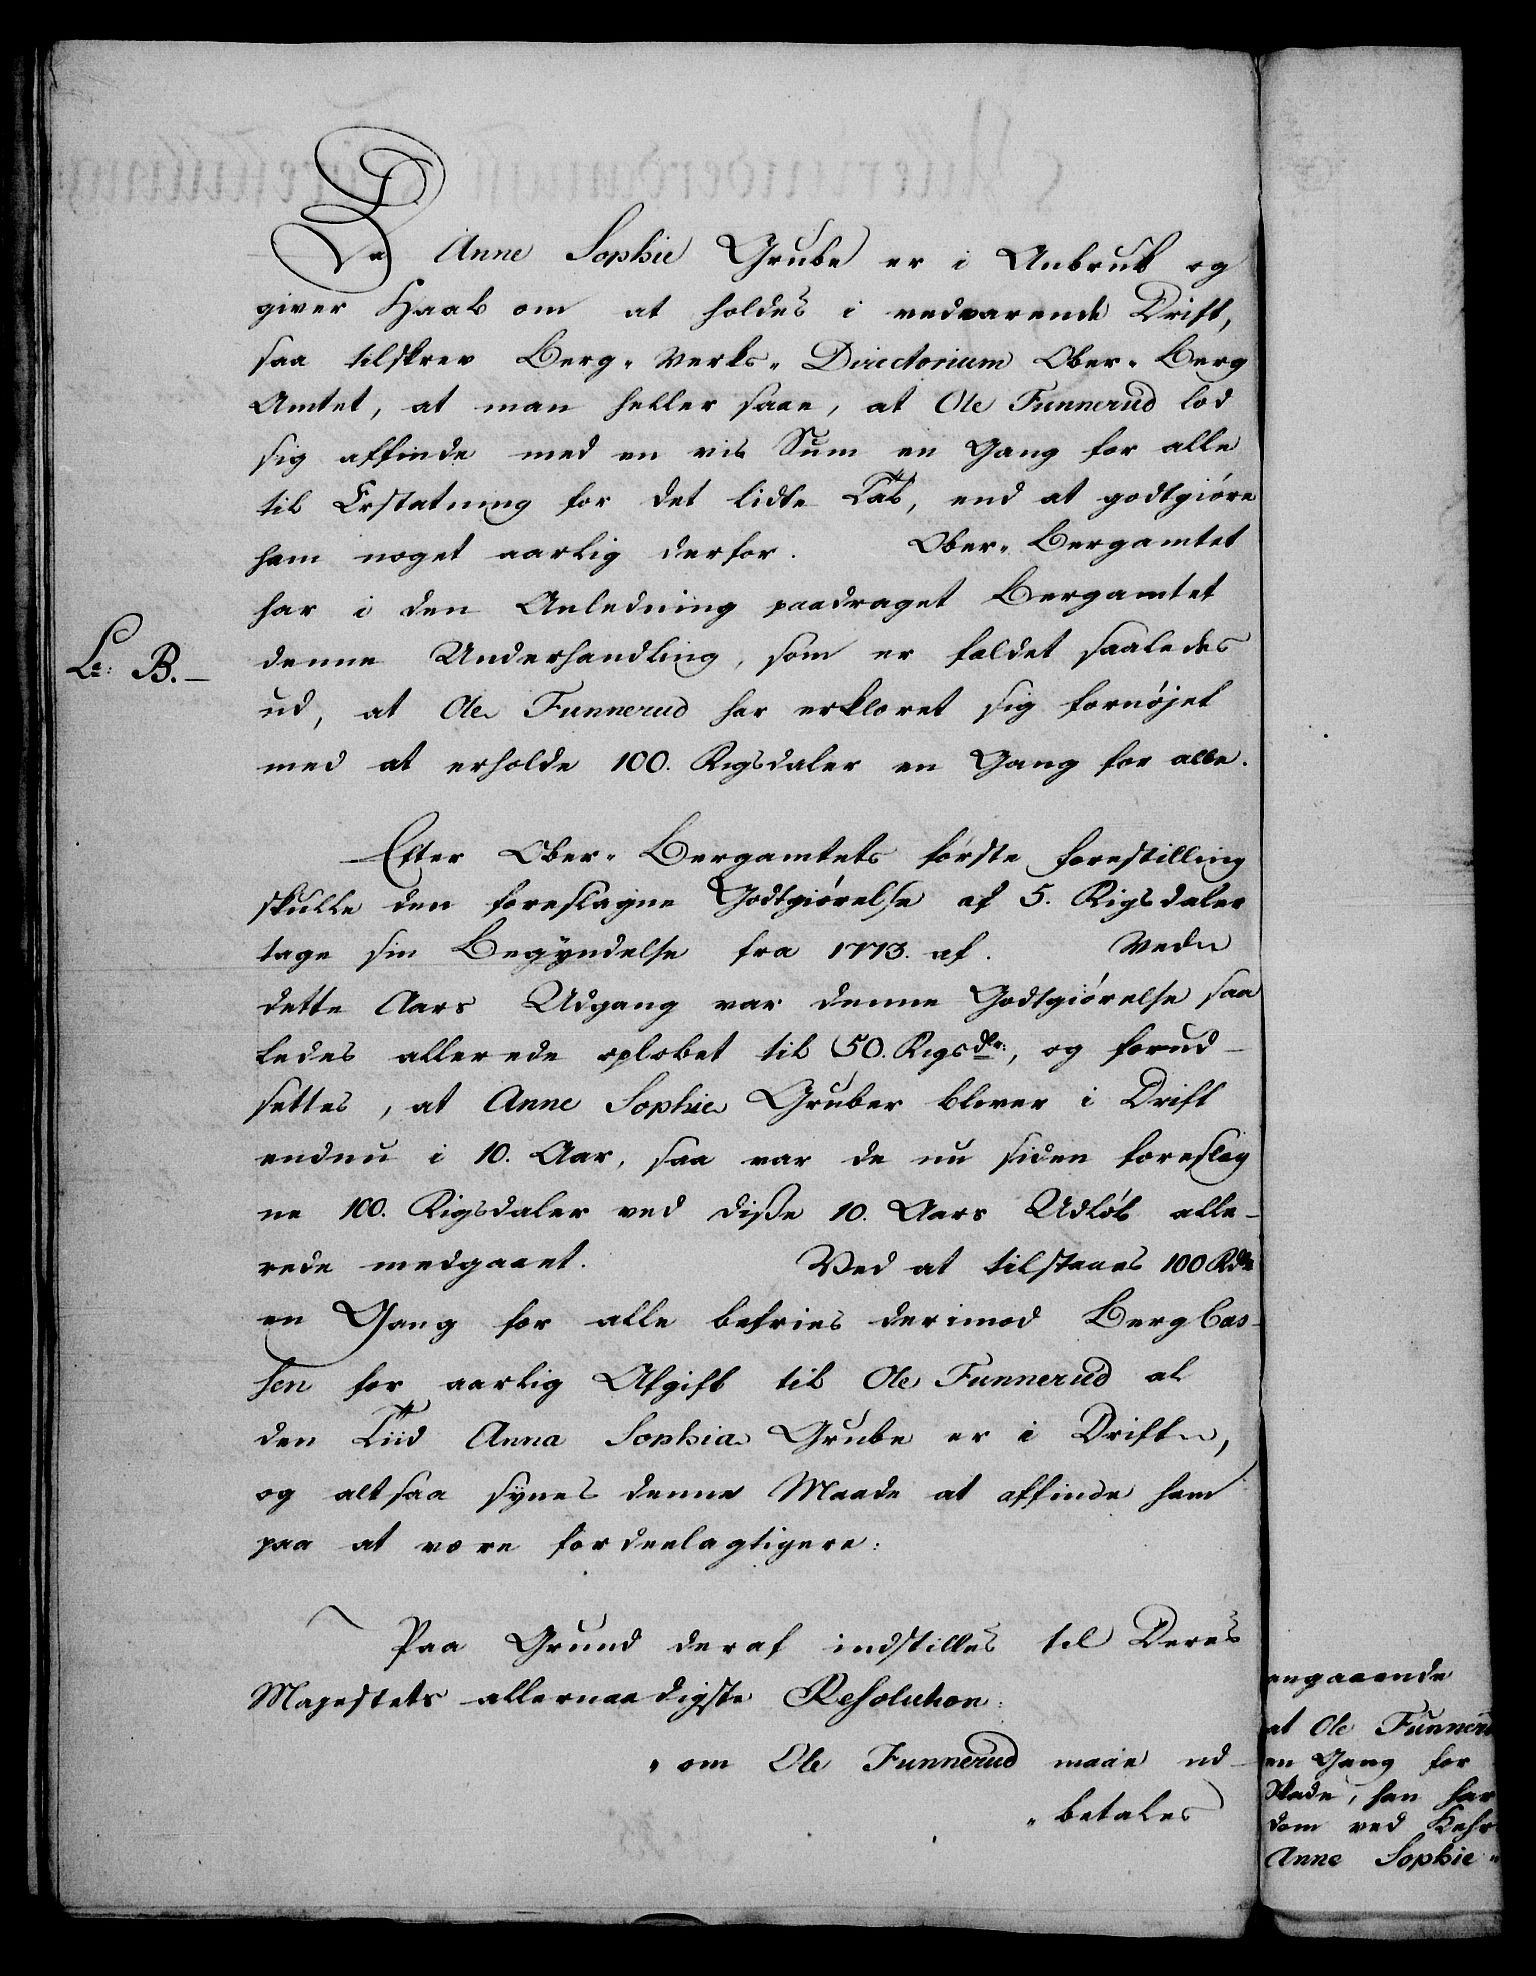 Da Anne Sophie Grube er i Anbrud og
giver Haab om at holdes i vedvarende Drift,
saa tilskrev Berg-Verks-Directorium Ober-Berg
Amtet, at man heller saae, at Ole Funnerud lod
sig affinde med en vis Sum en Gang for alle
til Erstatning for det lidte Tab, end at godtgiøre
ham noget aarlig derfor. Ober-Bergamtet
har i den Anledning paadraget Bergamtet
Lr: B.-
denne Underhandling, som er faldet saaledes
ud, at Ole Funnerud har erklæret sig fornøjet
med at erholde 100. Rigsdaler en Gang for alle.
Efter Ober-Bergamtets første Forestilling
skulle den foreslagne Godtgiørelse af 5. Rigsdaler
tage sin Begyndelse fra 1773. af. Ved
dette Aars Udgang var denne Godtgiørelse saa
ledes allerede opløbet til 50. Rigsdlr:, og forud-
settes, at Anne Sophie Gruber bliver i Drift
endnu i 10. Aar, saa var de nu siden foreslag
ne 100. Rigsdaler ved diße 10. Aars Udløb alle-
rede medgaaet. Ved at tilstaaes 100 Rdlr
en Gang for alle befries derimod Berg Cas-
sen for aarlig Afgift til Ole Funnerud al
den Tiid Anna Sophia Grube er i Drift,
og altsaa synes denne Maade at affinde ham
paa at være fordeelagtigere:
Paa Grund deraf indstilles til Deres
Majestets allernaadigste Resolution:
" om Ole Funnerud maae ud-
" betales
angaaende
at Ole Funneru
en Gang for
Skade, han har
dom ved
Anne Sophie "